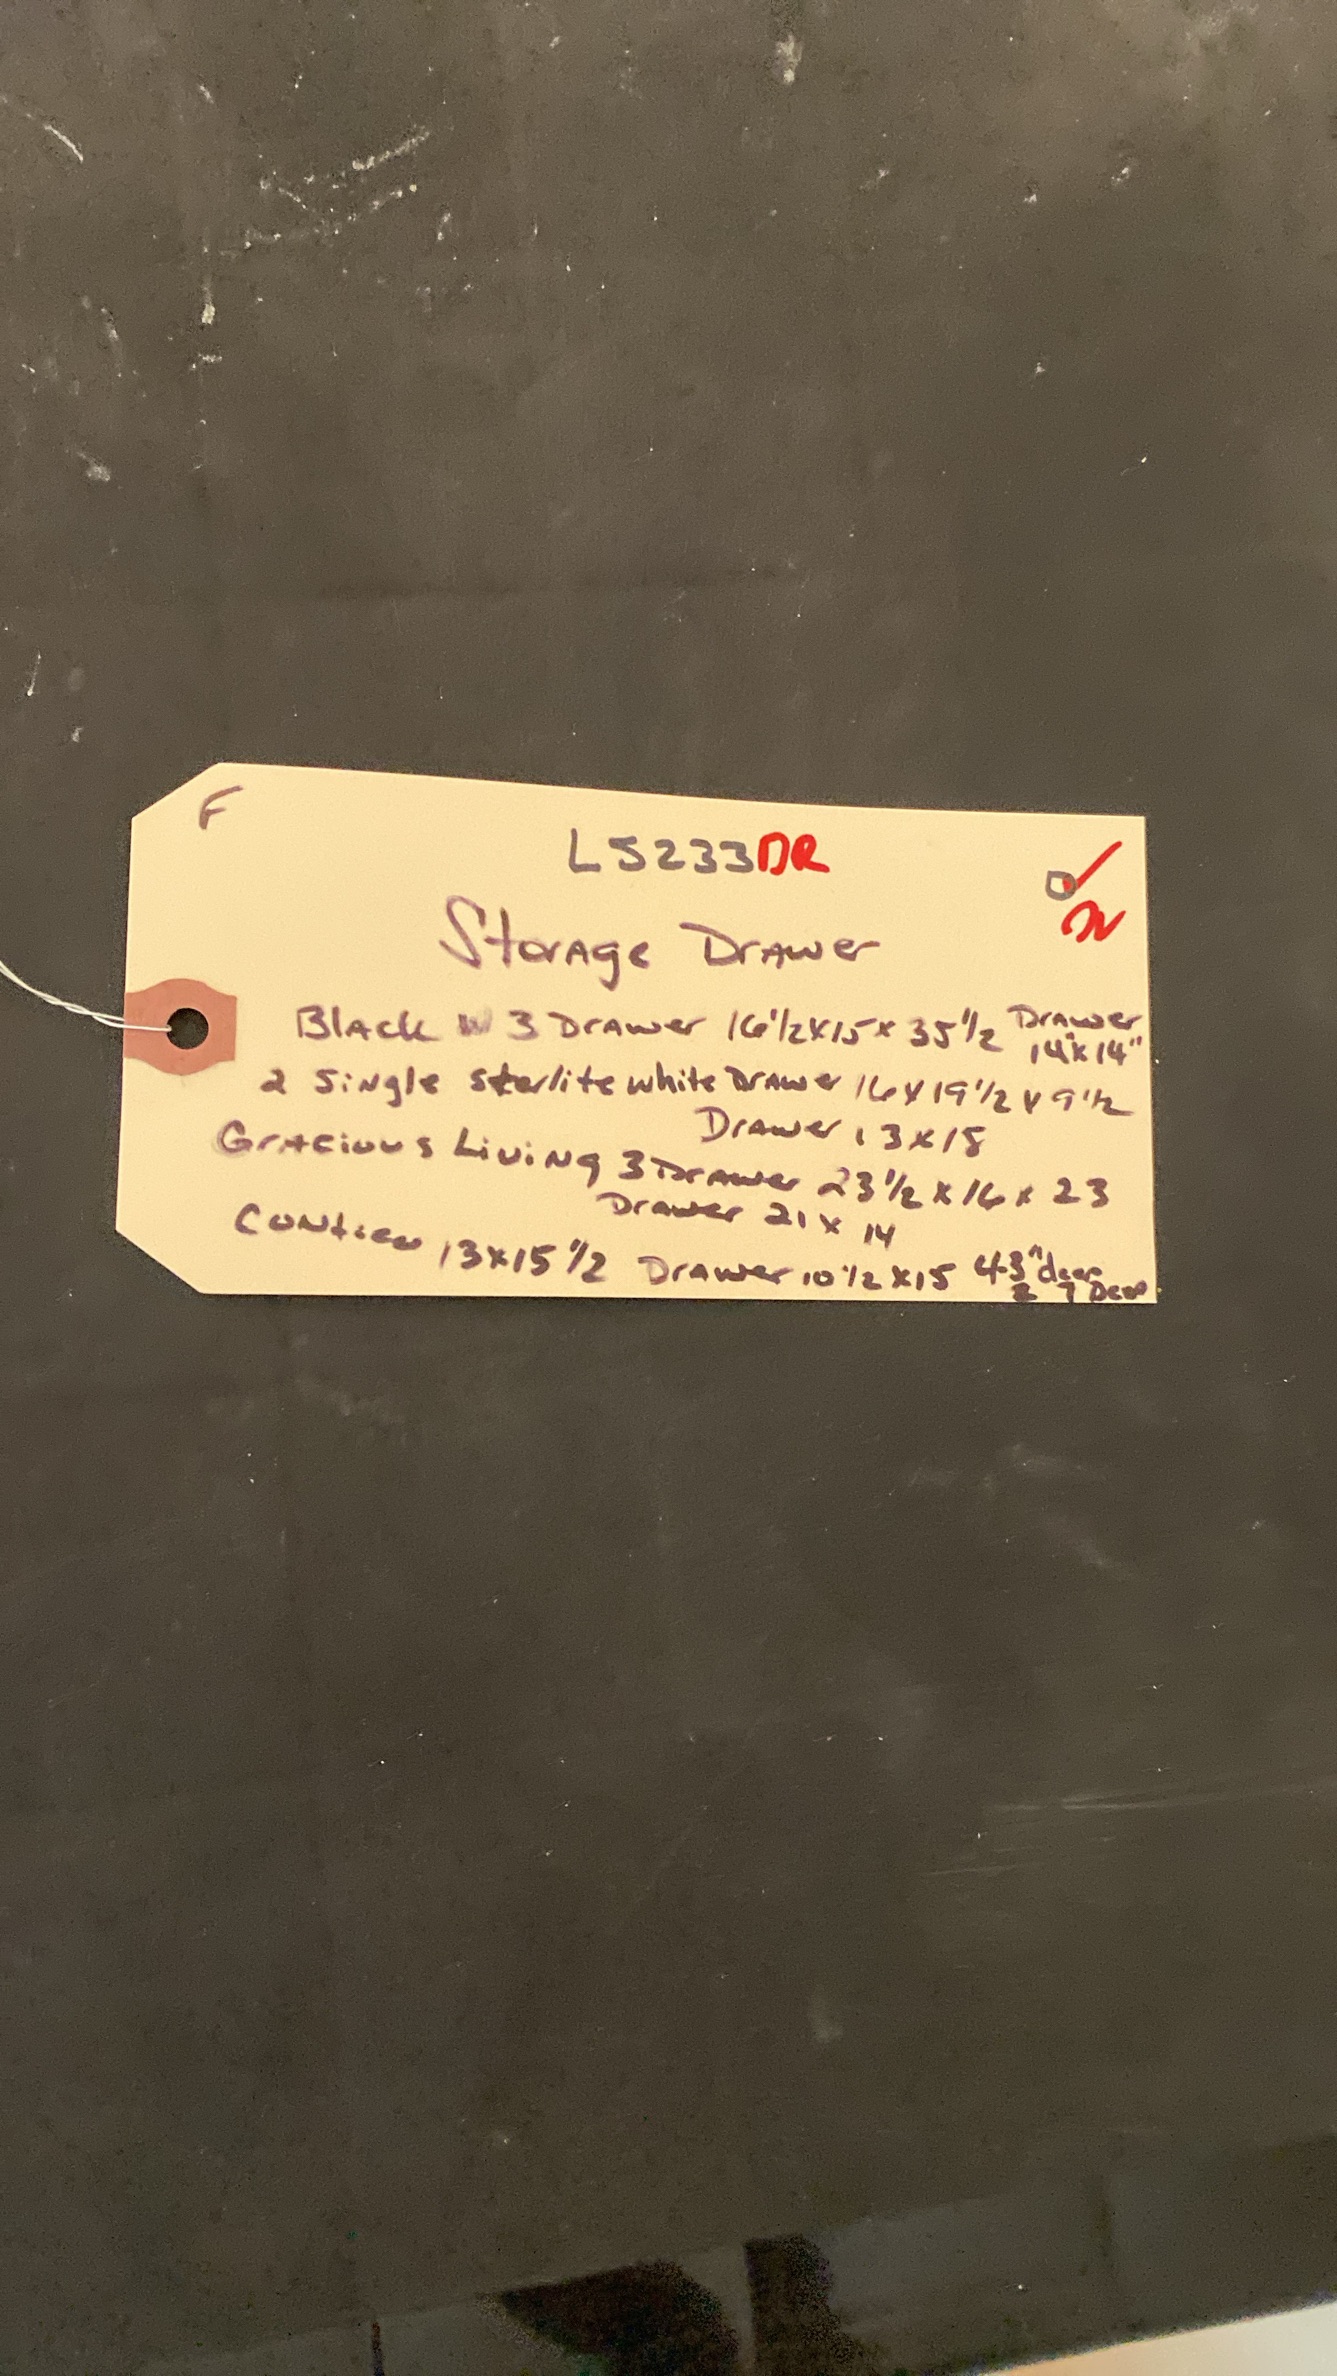 F
LS233DR
Storage Drawer
Black W 3 Drawer 16 1/2 x 15 x 35 1/2 Drawer
14" x 14"
2 Single Sterlite white Drawer 16 x 19 1/2 x 9 1/2
Drawer 13 x 18
Gracious Living 3 Drawer 23 1/2 x 16 x 23
Drawer 21 x 14
13 x 15 1/2 Drawer 10 1/2 x 15 4 3" deep
2 7 Deep